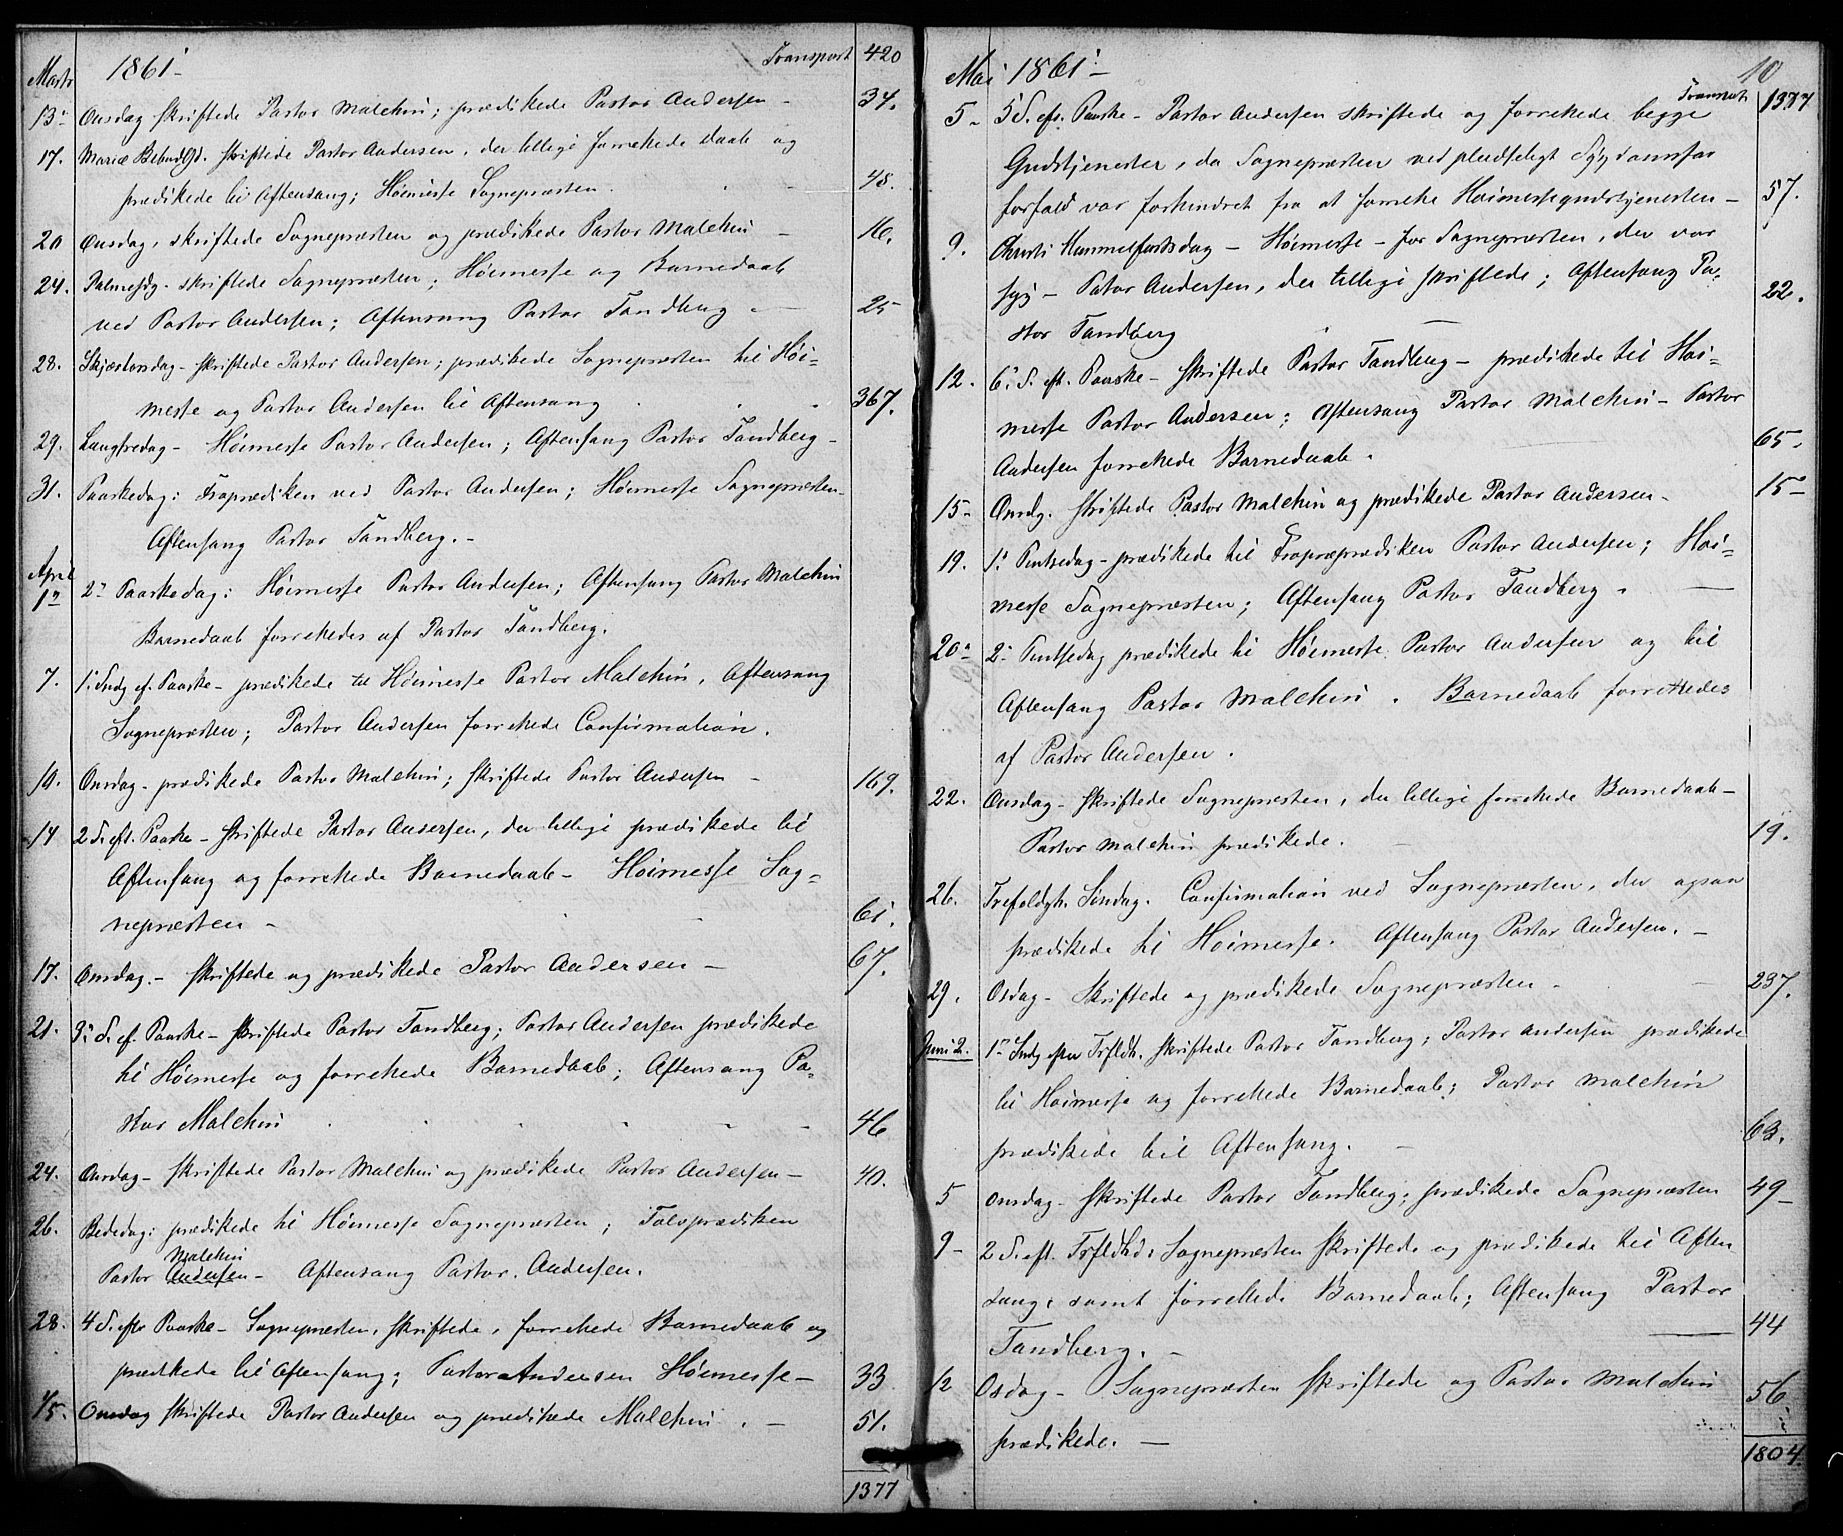 Marts 1861 - Transport 420
13 Onsdag skriftede Pastor Malchin; prædikede Pastor Andersen - 34.
17. Mariæ Bebudlsd. skriftede Pastor Andersen, der tillige forrettede Daab og
prædikede til Aftensang; Høimesse Sognepræsten. - 48.
20 Onsdag, skriftede Sognepræsten og prædikede Pastor Malchin - 16.
24. Palmesdg - skriftede Sognepræsten; Høimesse og Barnedaab
ved Pastor Andersen; Aftensang Pastor Tandberg - 25
28. Skjærtorsdag - skriftede Pastor Andersen; prædikede Sognepræsten til Høi=
messe og Pastor Andersen til Aftensang 367.
29. Langfredag - Høimesse Pastor Andersen; Aftensang Pastor Tandberg -
31. Paaskedag: Froprædiken ved Pastor Andersen; Høimesse Sognepræsten -
Aftensang Pastor Tandberg. -
April
1 2 Paaskedag: Høimesse Pastor Andersen; Aftensang Pastor Malchin
Barnedaab forrettedes af Pastor Tandberg.
7. 1 Sndg ef. Paaske - prædikede til Høimesse Pastor Malchin, Aftensang
Sognepræsten; Pastor Andersen forrettede Confirmation.
10. Onsdag - prædikede Pastor Malchin; skriftede Pastor Andersen - 169.
14 2 S. eft. Paaske - skriftede Pastor Andersen, der tillige prædikede til
Aftensang og forrettede Barnedaab - Høimesse Sog=
nepræsten - 61.
17. Onsdag. - skriftede og prædikede Pastor Andersen - 67.
21. 3 S. ef. Paaske - skriftede Pastor Tandberg; Pastor Andersen prædikede
til Høimesse og forrettede Barnedaab; Aftensang Pa=
stor Malchin - 46
24. Onsdag - skriftede Pastor Malchin og prædikede Pastor Andersen - 40.
26. Bededag: prædikede til Høimesse Sognepræsten; Tolvprædiken
Malchin
Pastor Andersen - Aftensang Pastor Andersen.
28. 4 S. efter Paaske - Sognepræsten, skriftede, forrettede Barnedaab og
prædikede til Aftensang; Pastor Andersen Høimesse - 33
1/5. Onsdag skriftede Pastor Andersen og prædikede Malchin. - 51.
1377
10
Mai 1861 - Transport 1377
5 - 5 S. eft. Paaske - Pastor Andersen skriftede og forrettede begge
Gudstjenester, da Sognepræsten ved pludseligt Sygdomsfor
forfald var forhindret fra at forrette Høimessegudstjenesten - 57.
9. Christi Himmelfartsdag - Høimesse - for Sognepræsten, der var
syg - Pastor Andersen, der tillige skriftede; Aftensang Pa=
stor Tandberg - 22.
12. 6 S. eft. Paaske - skriftede Pastor Tandberg - prædikede til Høi=
messe Pastor Andersen; Aftensang Pastor Malchin - Pastor
Andersen forrettede Barnedaab. 65.
15 - Onsdg. skriftede Pastor Malchin og prædikede Pastor Andersen - 15 -
19. 1 Pintsedag - prædikede til Froprædiken Pastor Andersen; Høi=
messe Sognepræsten; Aftensang Pastor Tandberg. -
20 2 Pintsedag prædikede til Høimesse Pastor Andersen og til
Aftensang Pastor Malchin. Barnedaab forrettedes
af Pastor Andersen.
22. Onsdag - skriftede Sognepræsten, der tillige forrettede Barnedaab -
Pastor Malchin prædikede. - 19.
26. Trefoldgh. Søndag. Confirmation ved Sognepræsten, der ogsaa
prædikede til Høimesse. Aftensang Pastor Andersen. -
29. Osdag - skriftede og prædikede Sognepræsten - 237.
Juni 2. 1 Sndg efter Trfldh. skriftede Pastor Tandberg; Pastor Andersen prædikede
til Høimesse og forrettede Barnedaab; Pastor Malchin
prædikede til Aftensang. - 63.
5 Onsdag - skriftede Pastor Tandberg; prædikede Sognepræsten 49 -
9 - 2 S. eft. Trfldhd: Sognepræsten skriftede og prædikede til Aften
sang, samt forrettede Barnedaab; Aftensang Pastor
Tandberg. - 44
12 Osdag - Sognepræsten skriftede og Pastor Malchin 56
prædikede. -
1804.